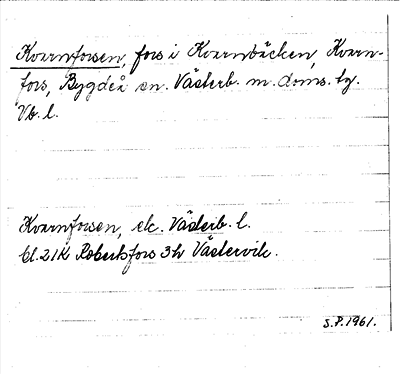 Kvarnforsen, fors i Kvarnbäcken, Kvarn-
fors, Bygdeå sn. Västerb. m. doms. tg.
Vb. l.
Kvarnforsen, ek. Västerb. l.
Bl. 21K Robertsfors 3h Västervik.
S.P. 1961.